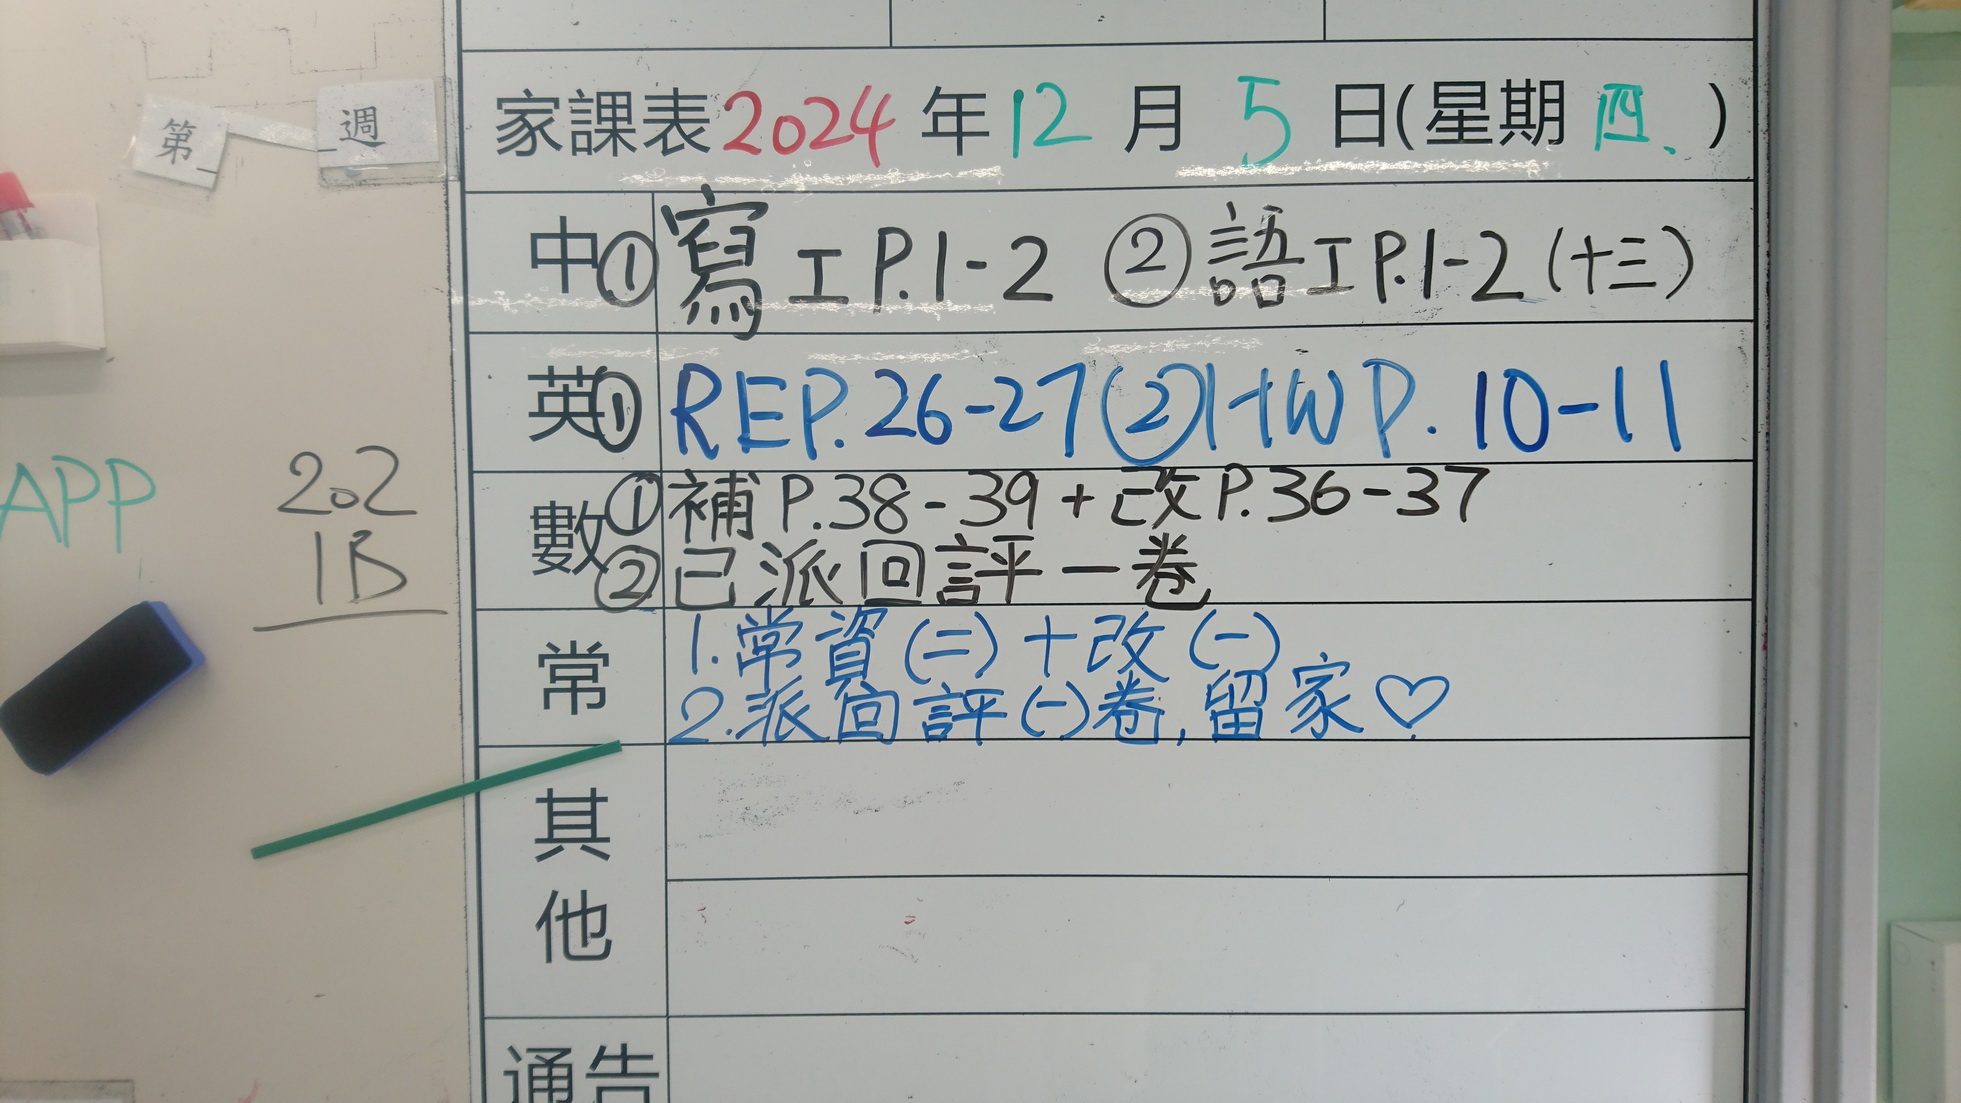 第 週
家課表2024年12月5日(星期四、)
中①寫工P.1-2 ②語工P.1-2(十三)
英①REP.26-27②HWP.10-11
數①補P.38-39+改P.36-37
②已派回評一卷
常1.常資(二)+改(一)
2.派回評(一)卷,留家♡
其他
通告
APP
202
1B